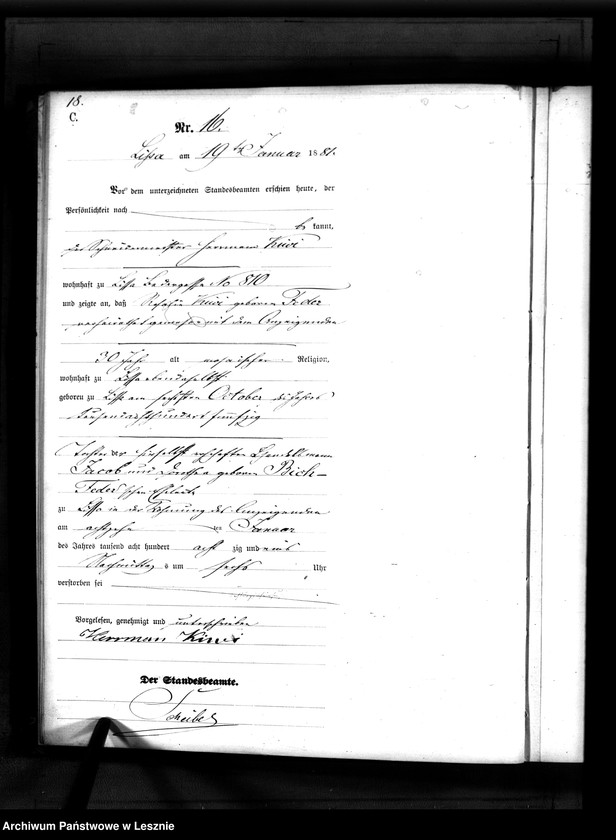 18.
C.
Nr. 16.
Lissa am 19ten Januar 1881.
Vor dem unterzeichneten Standesbeamten erschien heute, der
Persönlichkeit nach
be kannt,
der Schneidermeister Herrmann
wohnhaft zu Lissa No 810
und zeigte an, daß geborene Feder
verheirathet gewesen mit dem Anzeigenden
30 Jahr alt mosaischer Religion,
wohnhaft zu Lissa ebendaselbst
geboren zu Lissa am October des Jahres
tausend achthundert fünfzig
Tochter der Handelsmann
Jacob und geborene Bick-
Feder'schen Eheleute
zu Lissa in der Wohnung des Anzeigenden
am achtzehn ten Januar
des Jahres tausend acht hundert acht zig und eins
Nachmittags um sechs Uhr
verstorben sei
Vorgelesen, genehmigt und unterschrieben
Herrman
Der Standesbeamte.
Archiwum Państwowe w Lesznie